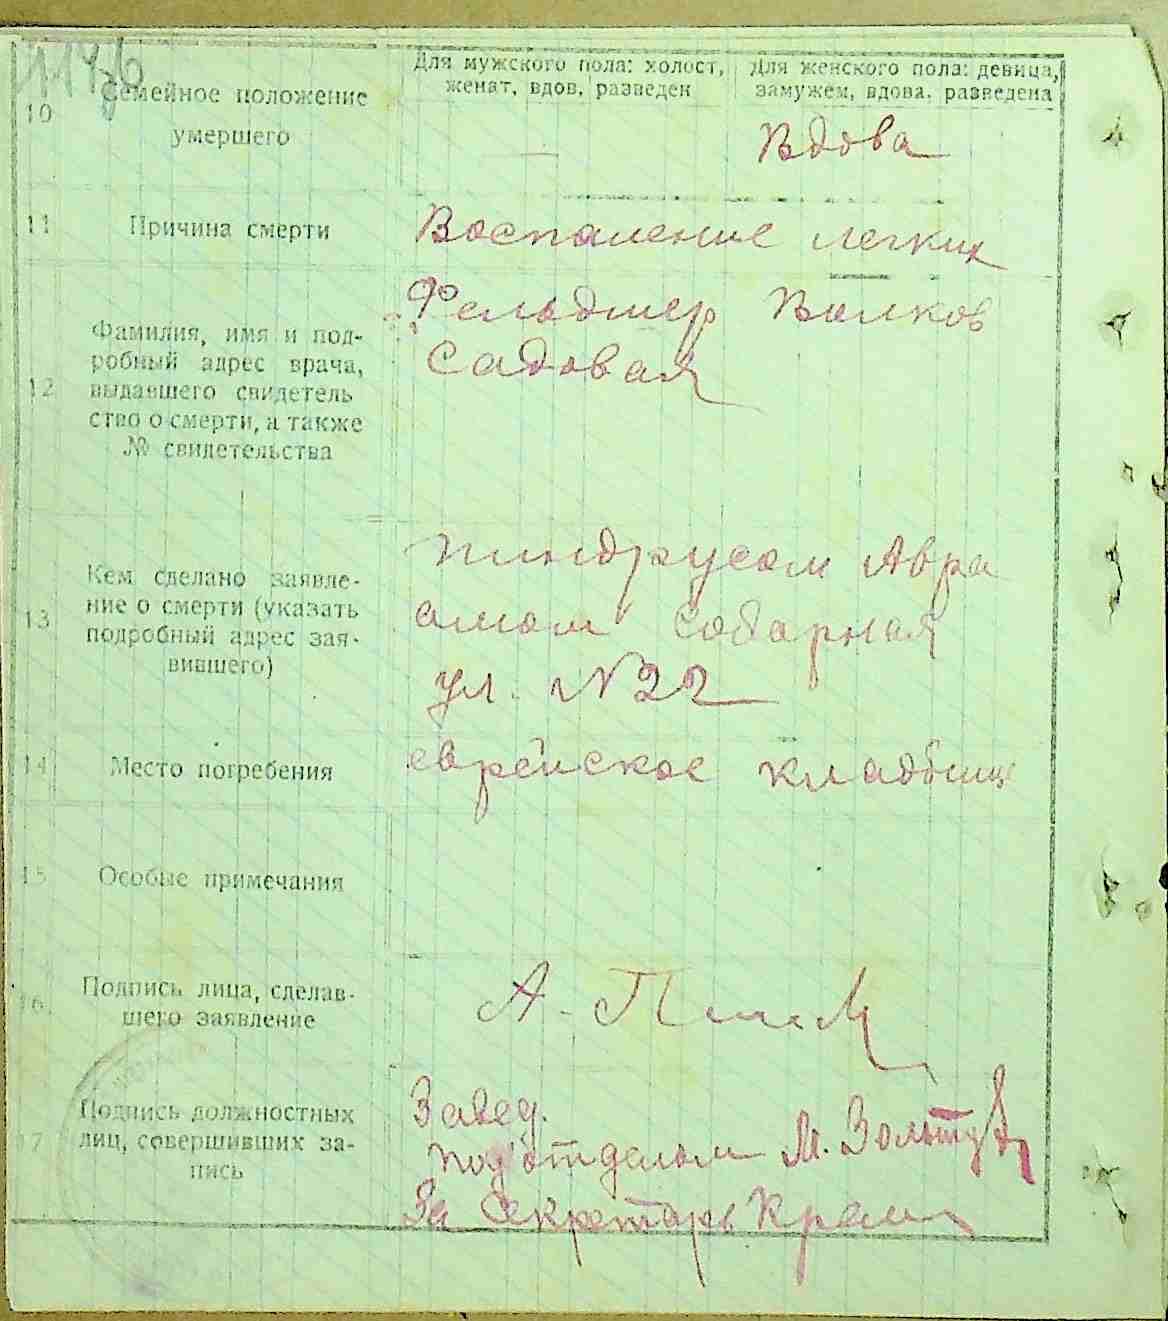 Для мужского пола: холост, женат, вдов, разведен
Для женского пола: девица, замужем, вдова, разведена
10
Семейное положение
умершего
—
Вдова
11
Причина смерти
Воспаление легких
12
Фамилия, имя и под-
робный адрес врача,
выдавшего свидетель
ство о смерти, а также
№ свидетельства
Фельдшер Волков
Садовая
13
Кем сделано заявле-
ние о смерти (указать
подробный адрес зая-
вившего)
Пиндрусом Авра
амом Соборная
ул. №22
14
Место погребения
еврейское кладбище
15
Особые примечания
16
Подпись лица, сделав-
шего заявление
А.
17
Подпись должностных
лиц, совершивших за-
пись
Завед.
подотделом М.
За Секретарь